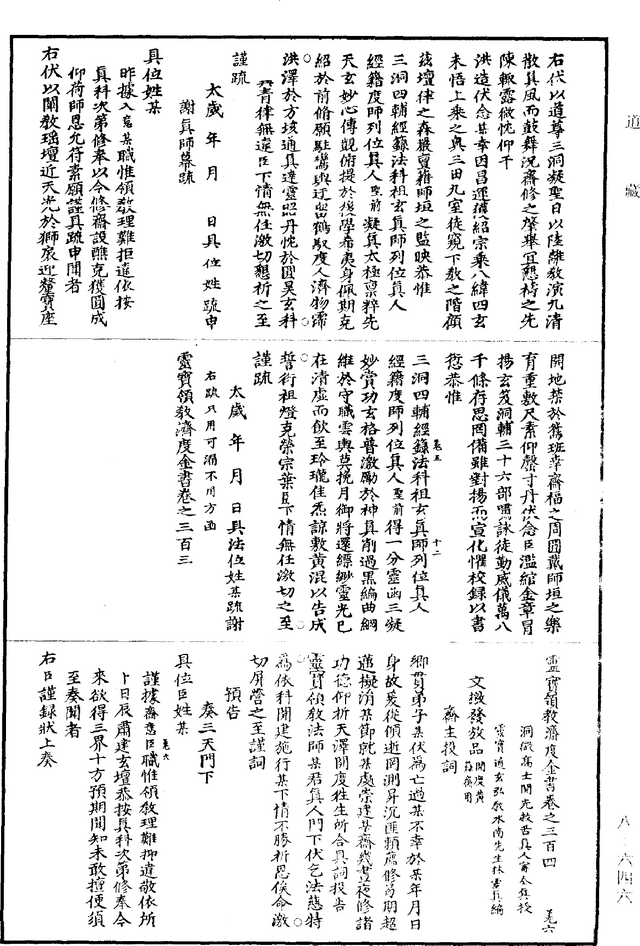 道藏
右伏以道尊三洞凝聖日以陸離教演九清
散真風而鼓舞況齋修之肇舉宜懇禱之先
陳輙露微忱仰干
洪造伏念某幸因昌運獲紹宗乘八緯四玄
未悟上乘之奧三田九室徒窺下教之階顧
茲壇律之森嚴賣籍師垣之監映恭惟
三洞四輔經籙法科祖玄真師列位真人
經籍度師列位真人聖前凝真太極稟粹先
天玄妙心傳覬俯提於後學希夷身佩斯克
紹於前脩願駐鸞輿迂留鶴馭度人濟物霈
洪澤於方垓通真達靈照丹忱於圓昊玄科
青律無違臣下情無任激切懇祈之至
謹疏
太歲年月日具位姓疏申
謝真師幕疏
具位姓某
昨據入意某職惟領教理難拒違依按
真科次第修奉以今修齋設醮克獲圓成
仰荷師恩允符素願謹具疏申聞者
右伏以闡教瑶壇近天光於獅扆迎釐寶座
開地禁於鴛班幸齋福之周圓戴師垣之樂
育重敷尺素仰磬寸丹伏念臣濫綰金章冐
揚玄笈洞輔三十六部嘿詠徒勤威儀萬八
千條存思罔備雖對揚而宣化懼校録以書
愆恭惟
三洞四輔經籙法科祖玄真師列位真人
卷五 十二
經籍度師列位真人聖前得一分靈函三凝
妙賞功玄格普激勵於神真削過黑編曲網
維於守職雲輿莫挽月御將還縹緲靈光已
在清虛而歛至玲瓏佳炁諒敷黄混以告成
誓衍祖燈克榮宗葉臣下情無任激切之至
謹疏
太歲年月日具法位姓某疏謝
右疏只用可漏不用方函
靈寶領教濟度金書卷之三百三
靈寶領教濟度金書卷之三百四 卷六
洞微高士開光救苦真人甯全真授
靈寶通玄弘教水南先生林靈真編
文檄發放品開度黄籙齋用
齋主投詞
鄉貫弟子某伏爲亡過某不幸於某年月日
身故爰從傾逝罔測昇沉匪頼薦修曷期超
邁擬涓某節就某處崇建某齋幾晝夜修諸
功德仰祈天澤開度徃生所合具詞投告
靈寶領教法師某君真人門下伏乞法慈特
爲依科開建施行某下情不勝祈恩俟命激
切屏營之至謹詞
預告
奏三天門下
具位臣姓某
謹據齋意臣職惟領教理難抑違敬依所
卷六
卜日辰肅建玄壇恭按具科次第修奉令
來欲得三界十方預期聞知未敢擅便須
至奏聞者
右臣謹録狀上奏
八-六四六